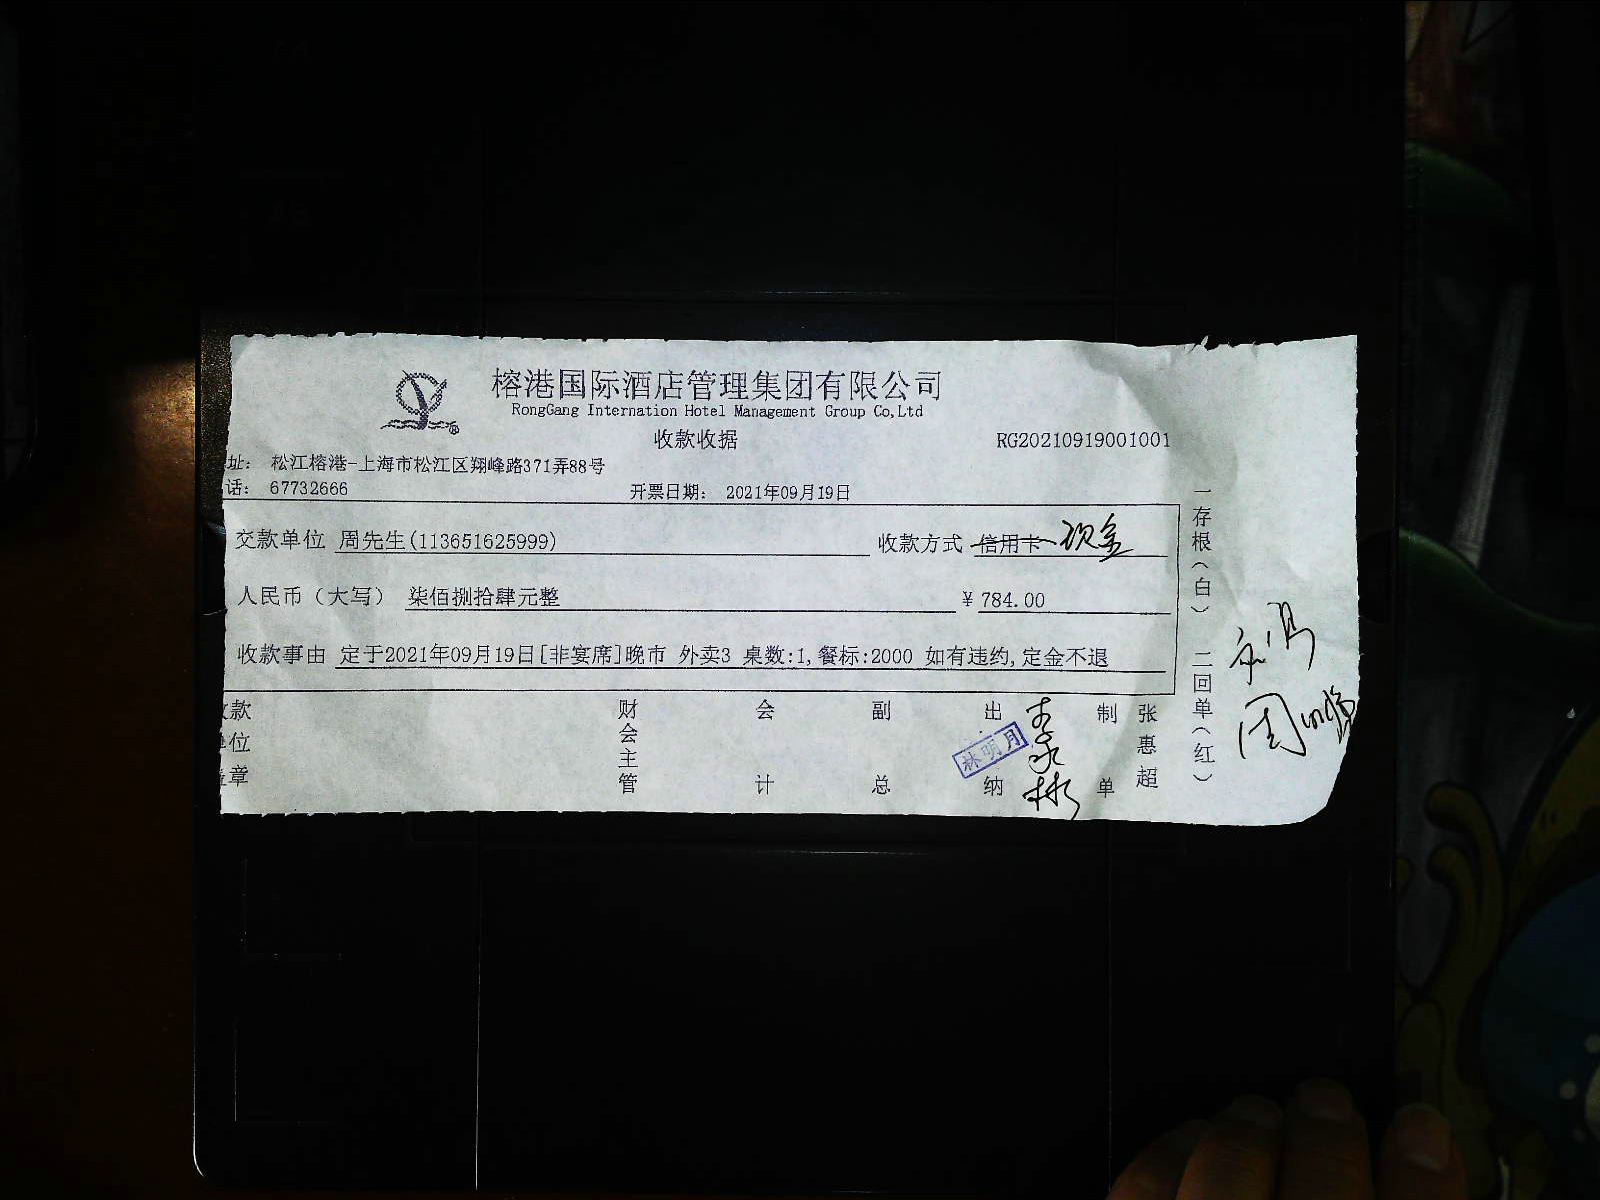 榕港国际酒店管理集团有限公司
RongGang Internation Hotel Management Group Co,Ltd
收款收据 RG20210919001001
址： 松江榕港-上海市松江区翔峰路371弄88号
话： 67732666 开票日期： 2021年09月19日
交款单位 周先生(113651625999) 收款方式 信用卡 现金
人民币（大写） 柒佰捌拾肆元整 ¥ 784.00
收款事由 定于2021年09月19日[非宴席]晚市 外卖3 桌数:1,餐标:2000 如有违约,定金不退
款
位
章
财会主管
会计
副总
出纳
林明月
制单
张惠超
一存根（白） 二回单（红）